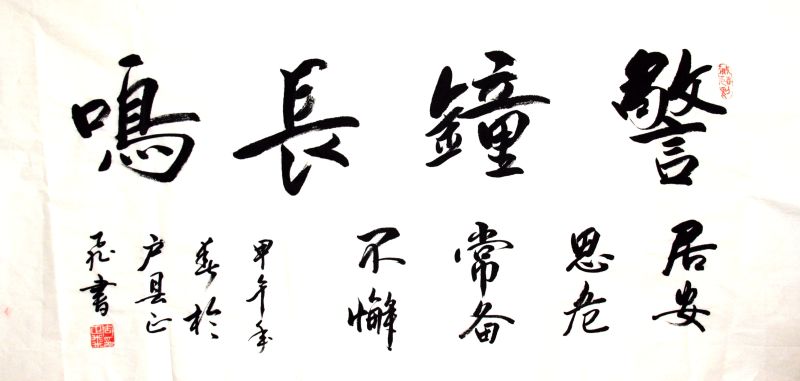 警鐘長鳴
居安
思危
常备
不懈
甲午年
春於
户县正
飛書